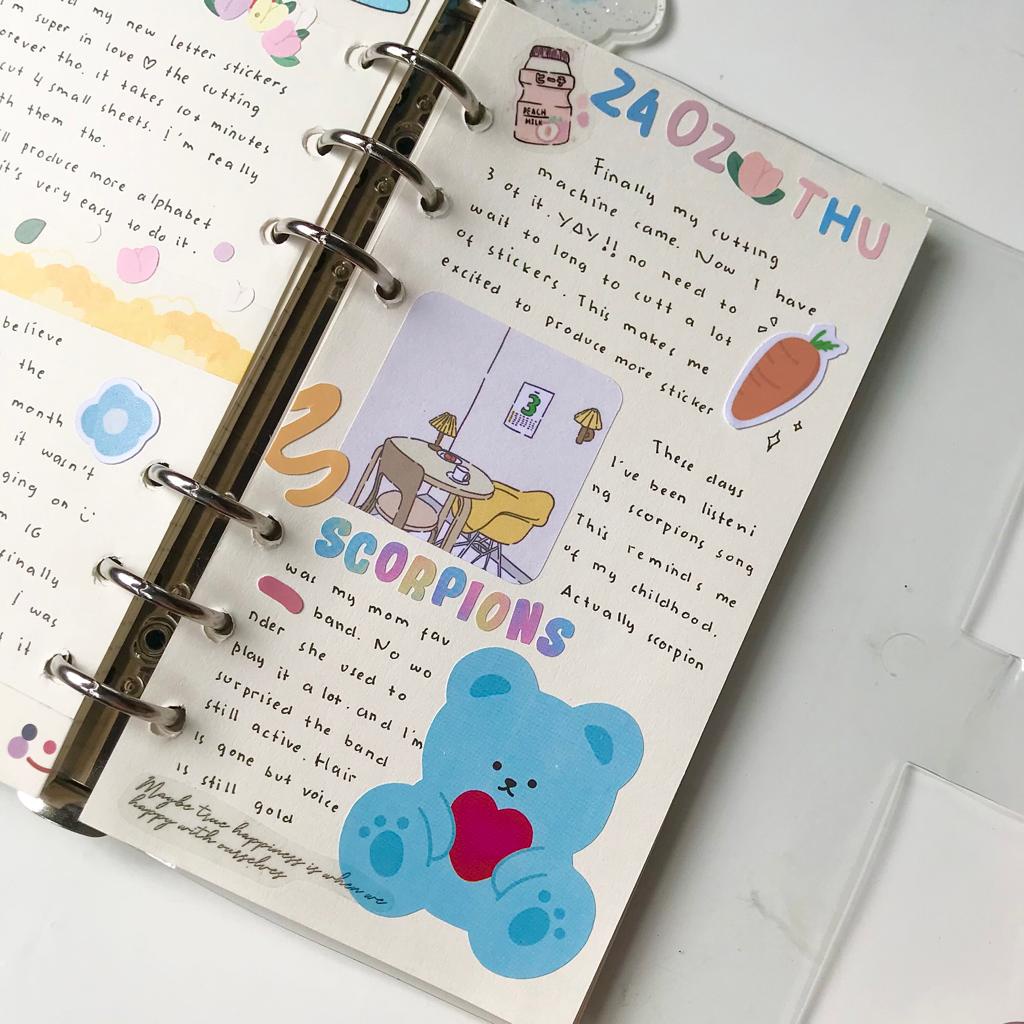 my new letter stickers
I'm super in love ♡ the cutting
forever tho. it takes 10+ minutes
cut 4 small sheets. i'm really
with them tho.
produce more alphabet
it's very easy to do it.
believe
the
month
it wasn't
ging on
IG
finally
I was
it
ピーチ
PEACH
MILK
24 02 THU
Finally my cutting
machine came. Now I have
3 of it. YAY!! no need to
wait to long to cutt a lot
of stickers. This makes me
excited to produce more sticker
3
These days
I've been listeni
ng scorpions song
This reminds me
of my childhood.
Actually scorpion
SCORPIONS
was my mom fav
band. No wo
nder she used to
play it a lot. and I'm
surprised the band
still active. Hair
is gone but voice
is still gold
Maybe true happiness is when we
happy with ourselves